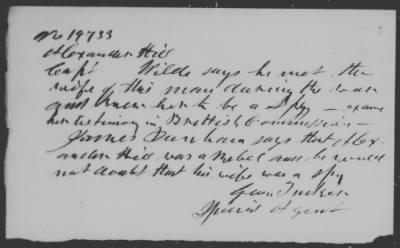 No 19733
Alexander Hill
Capt Wilde says he met the
wife of this man during the war
and knew her to be a Spy – 
her testimony in British Commission –
James Dunham says that Alex-
ander Hill was a Rebel and he would
not doubt that his wife was a spy
Geo. Tucker
Special Agent